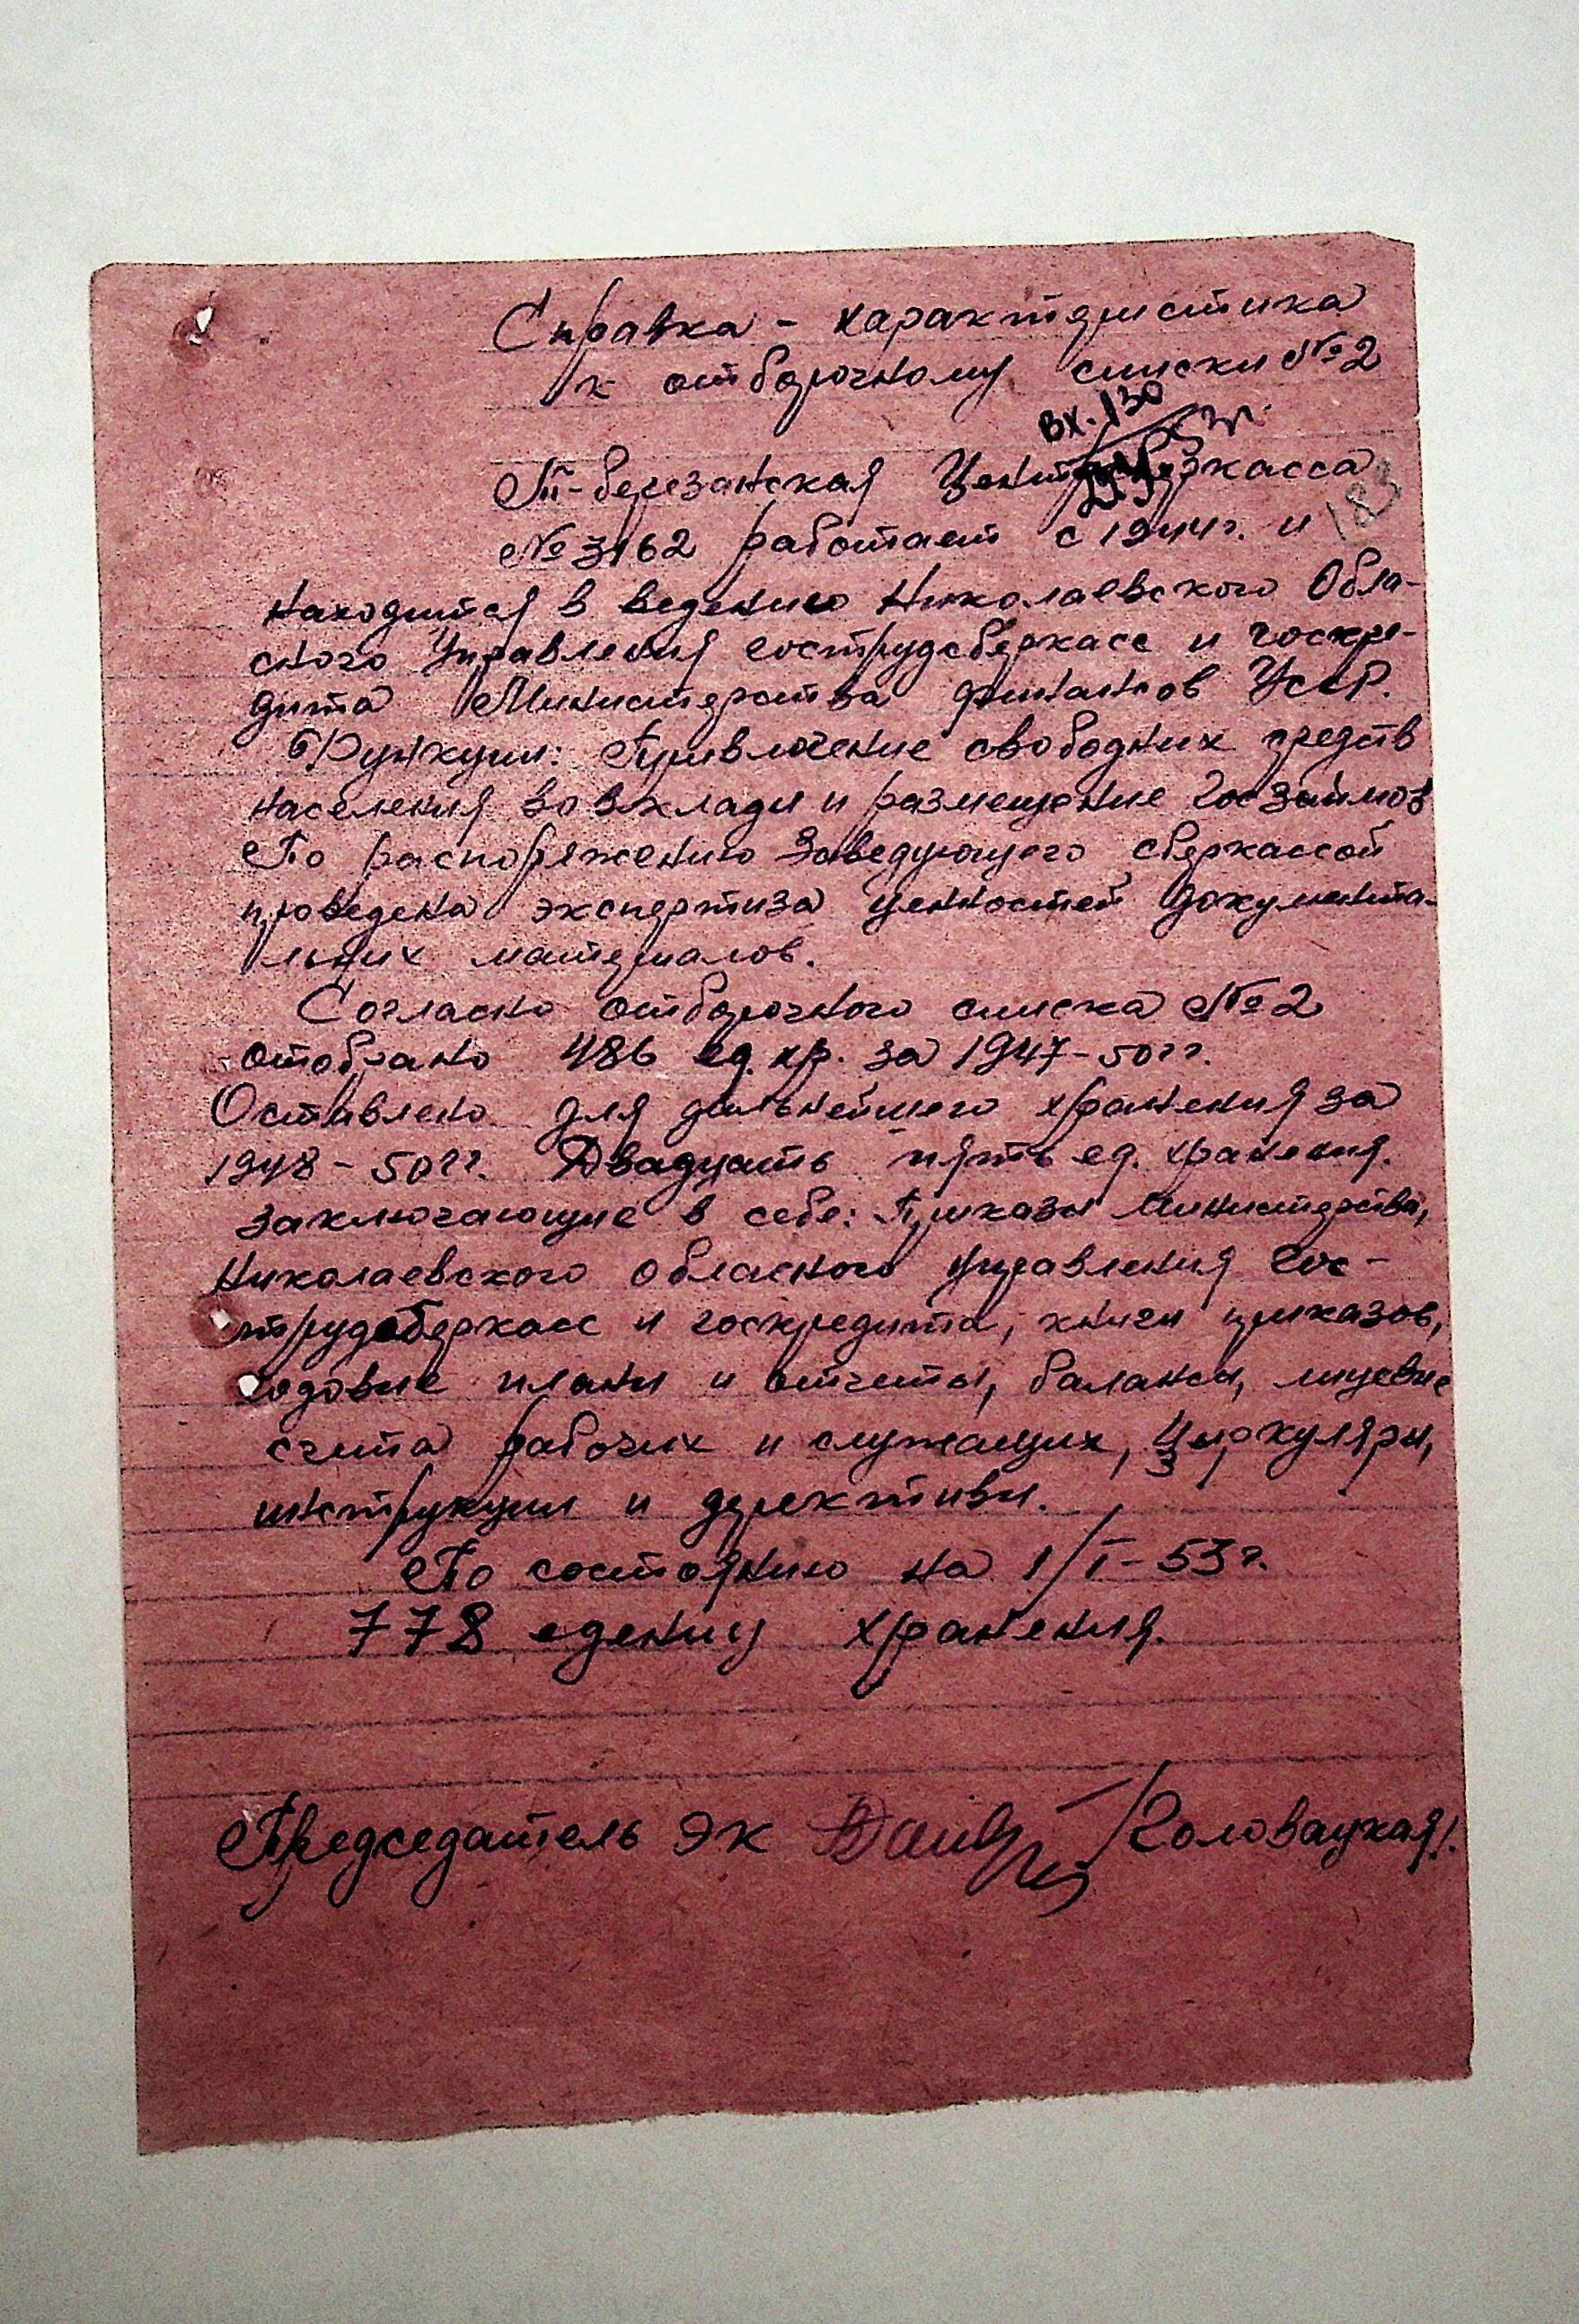 Справка - характеристика
к отборочному списки №2
Вх. 130
Т-березанская Центрсберкасса
183
№ 3162 работает с 1944г. и
находится в ведению Николаевского Обла-
сного Управления гострудсберкасс и госкре-
дита Министерства финансов УССР.
Функции: Привлечение свободних средств
населения во вклади и размещение Госзаймов
По распоряжению Заведующего сберкассой
проведена экспертиза ценностей документа-
льних материалов.
Согласно отборочного списка №2
отобрано 486 ед. хр. за 1947-50гг.
Оставлено для дальнейшего хранения за
1948-50гг. Двадцать пять ед. хранения.
заключающие в себе: Приказы Министерства,
Николаевского обласного управления Гос-
трудсберкасс и госкредита, книги приказов,
годовие плани и отчеты, балансы, лицевие
счета рабочих и служащих, Циркуляры,
инструкции и дерективи.
По состоянию на 1/I-53г.
778 едениц хранения.
Председатель ЭК /Головацкая/.